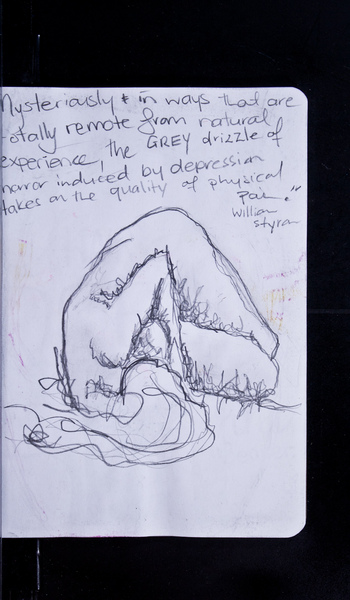 Mysteriously & in ways that are
totally remote from natural
experience, the GREY drizzle of
horror induced by depression
takes on the quality of physical
pain."
William
Styron